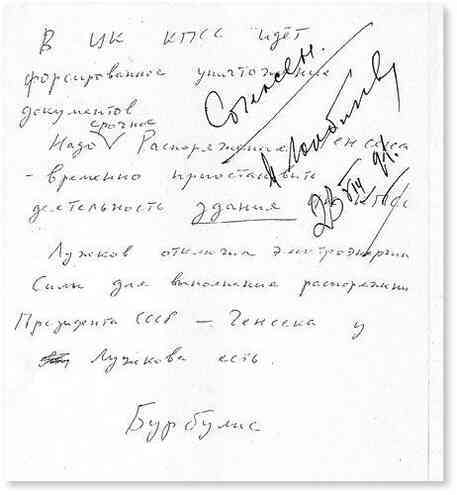 В ЦК КПСС идёт
форсированное уничтожение
документов
срочное
Надо Распоряжение Генсека
- временно приостановить
деятельность здания КПСС
Лужков отключил электроэнергию
Силы для выполнения распоряжения
Президента СССР – Генсека у
Лужкова есть.
Бурбулис
Согласен.
М Горбачёв
23 VIII 91.